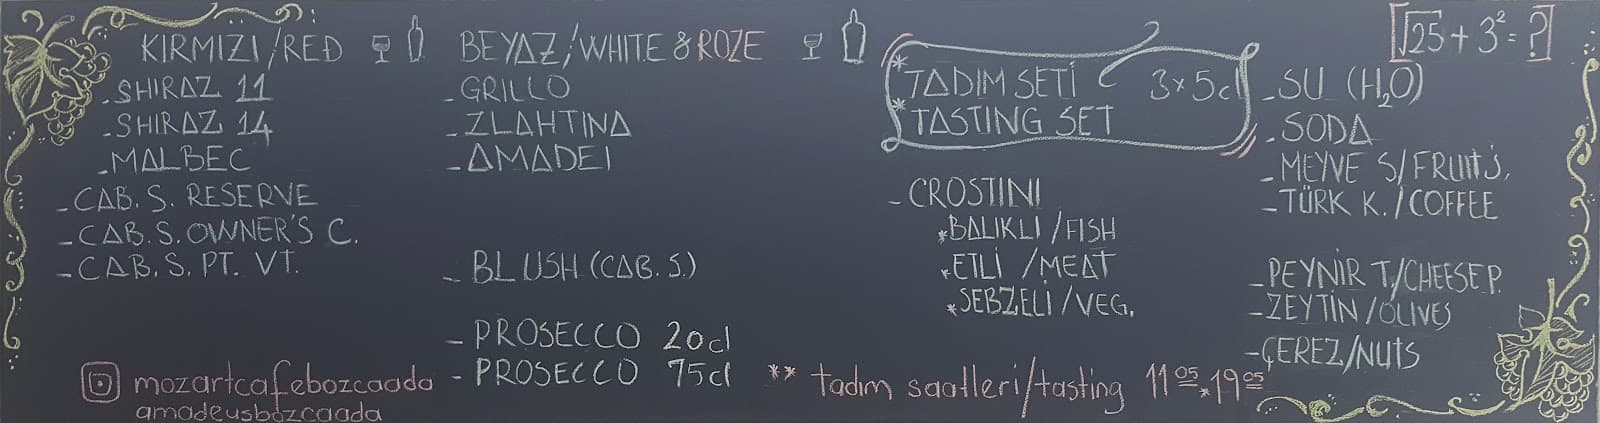 KIRMIZI/RED
-SHIRAZ 11
-SHIRAZ 14
-MALBEC
-CAB. S. RESERVE
-CAB. S. OWNER'S C.
-CAB. S. PT. VT.
mozartcafebozcaada
amadeusbozcaada
BEYAZ/WHITE & ROZE
-GRILLO
-ZLAHTINA
-AMADEI
-BLUSH (CAB. S.)
-PROSECCO 20cl
-PROSECCO 75cl
*TADIM SETİ 3x5cl
*TASTING SET
-CROSTINI
*BALIKLI/FISH
*ETLİ /MEAT
*SEBZELİ/VEG.
** tadım saatleri/tasting 11 05 * 19 05
[√25 + 3² = ?]
-SU (H₂O)
-SODA
-MEYVE S/FRUIT J.
-TÜRK K./COFFEE
-PEYNİR T./CHEESE P.
-ZEYTİN/OLIVES
-ÇEREZ/NUTS